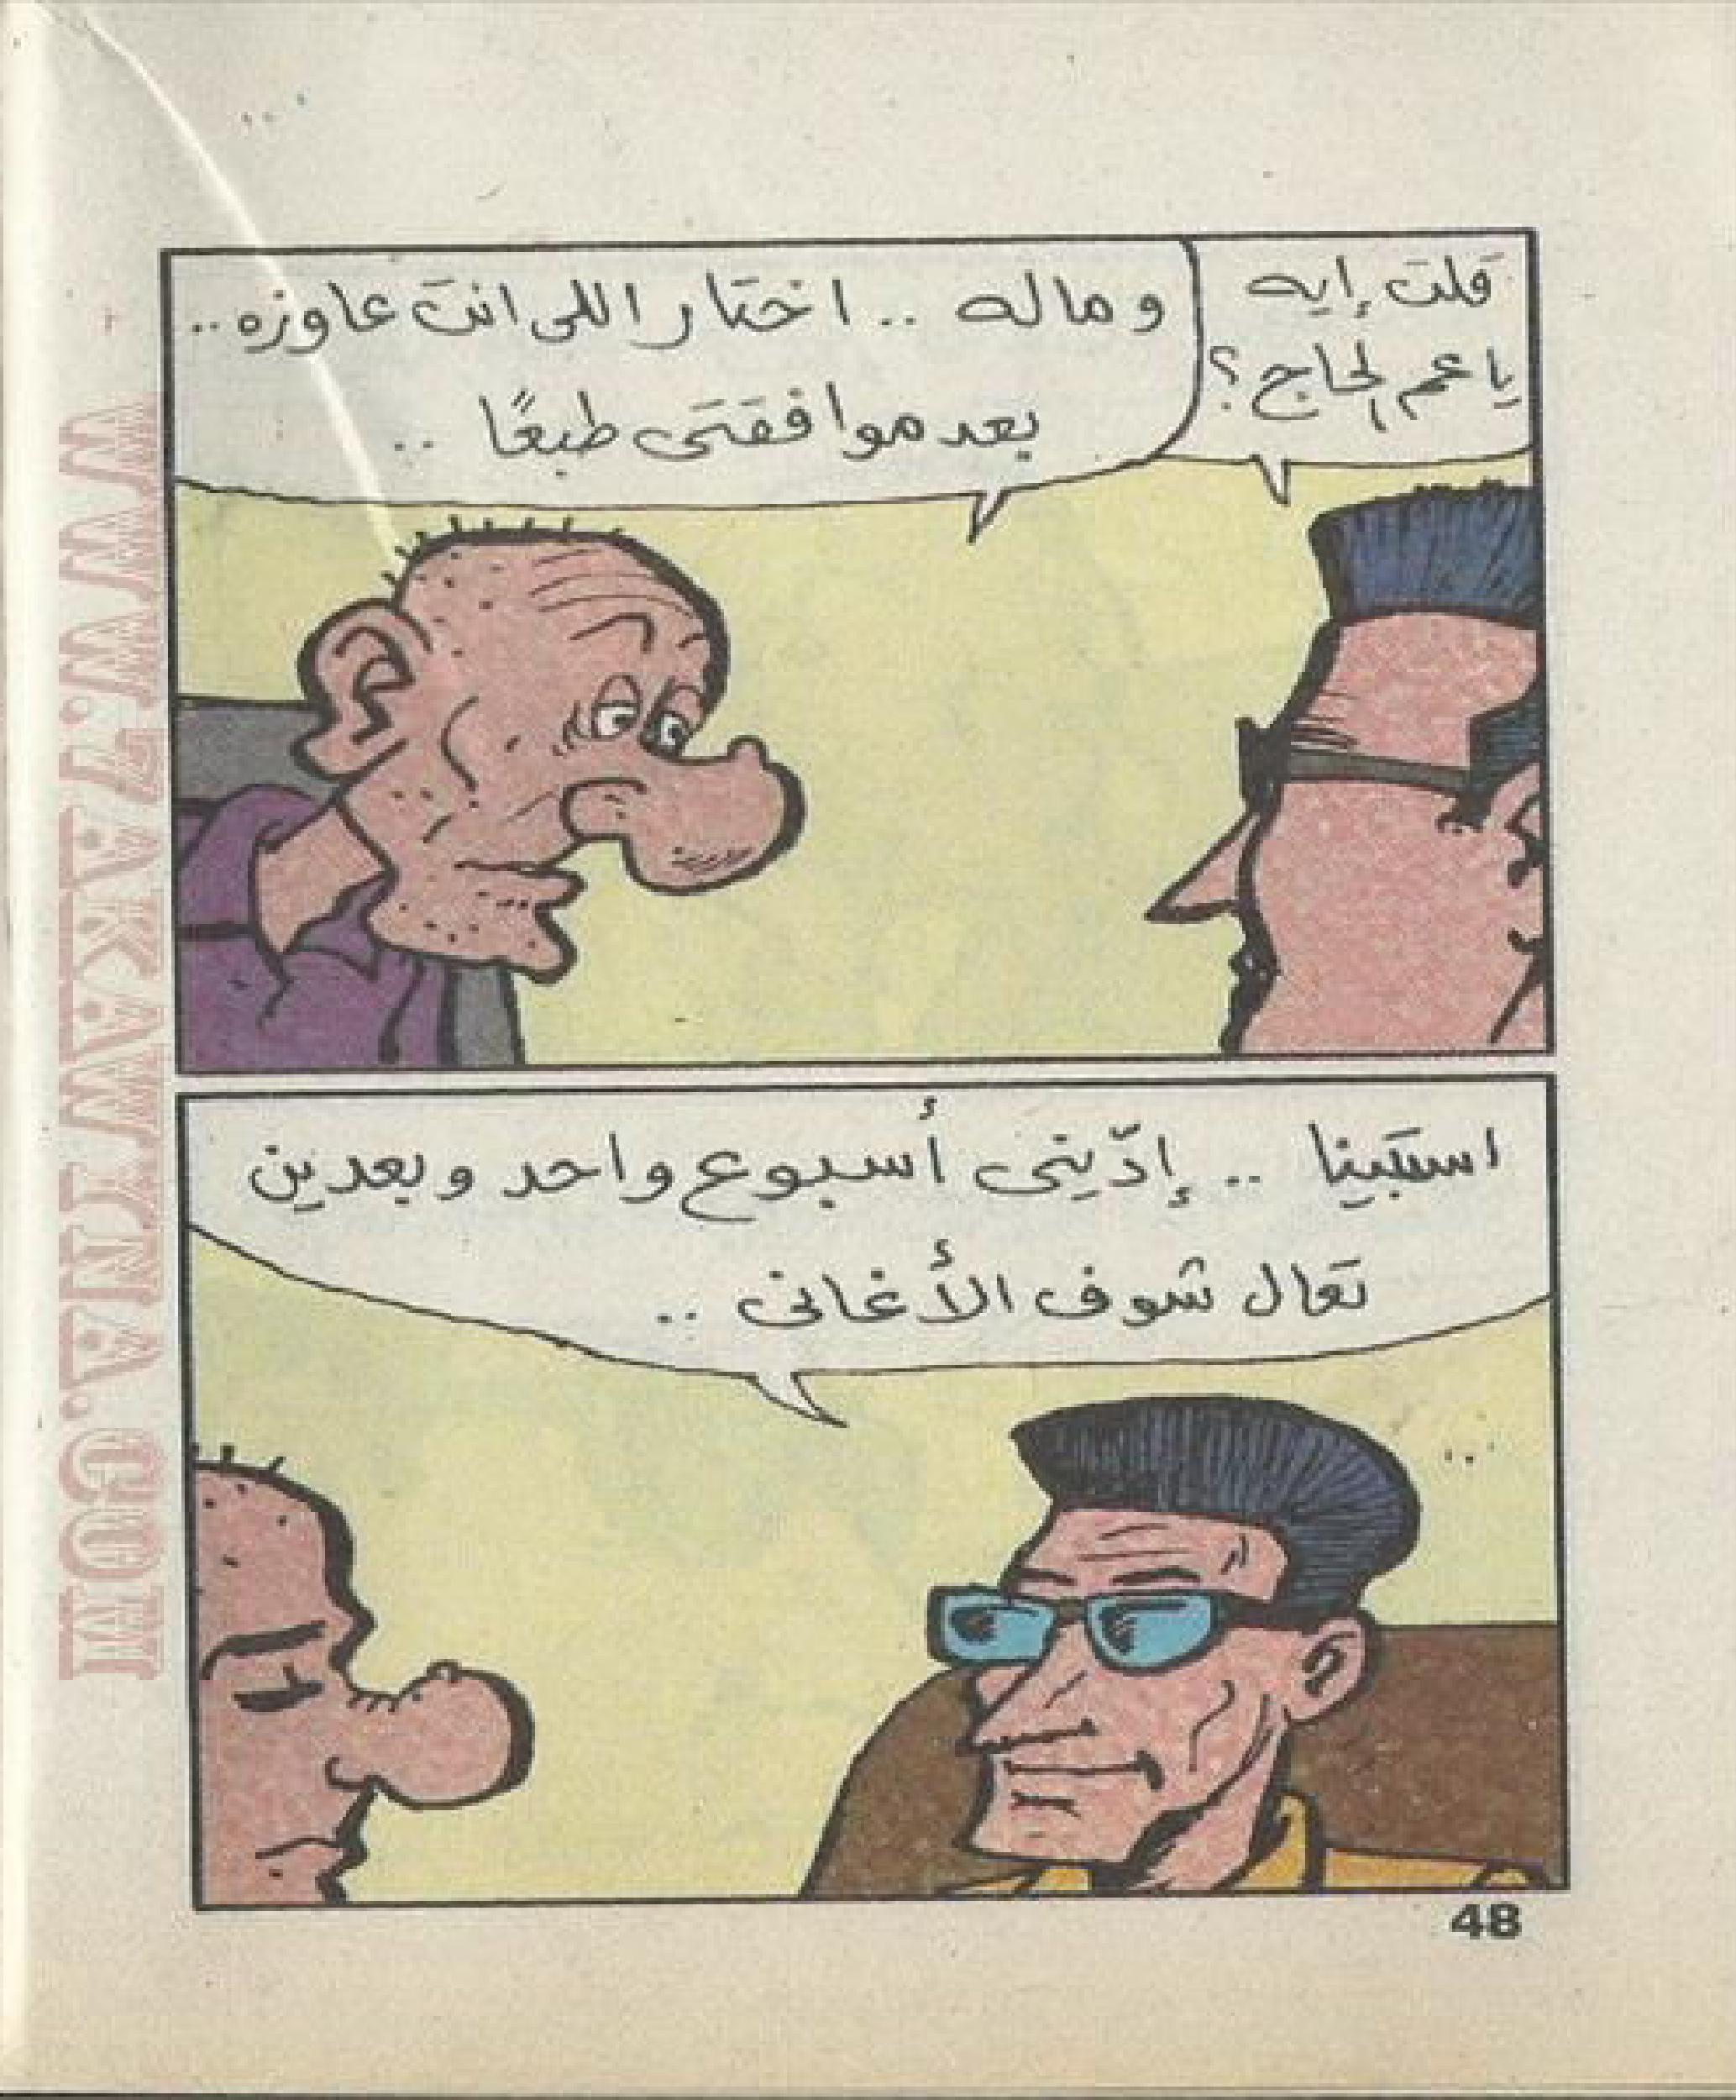 قلت إيه
يا عم الحاج ؟
وماله .. اختار اللى انت عاوزه ..
بعد موافقتى طبعًا ..
استبينا .. إدّينى أسبوع واحد وبعدين
تعال شوف الأغانى ..
48
WWW.ZAKAWINNA.COM